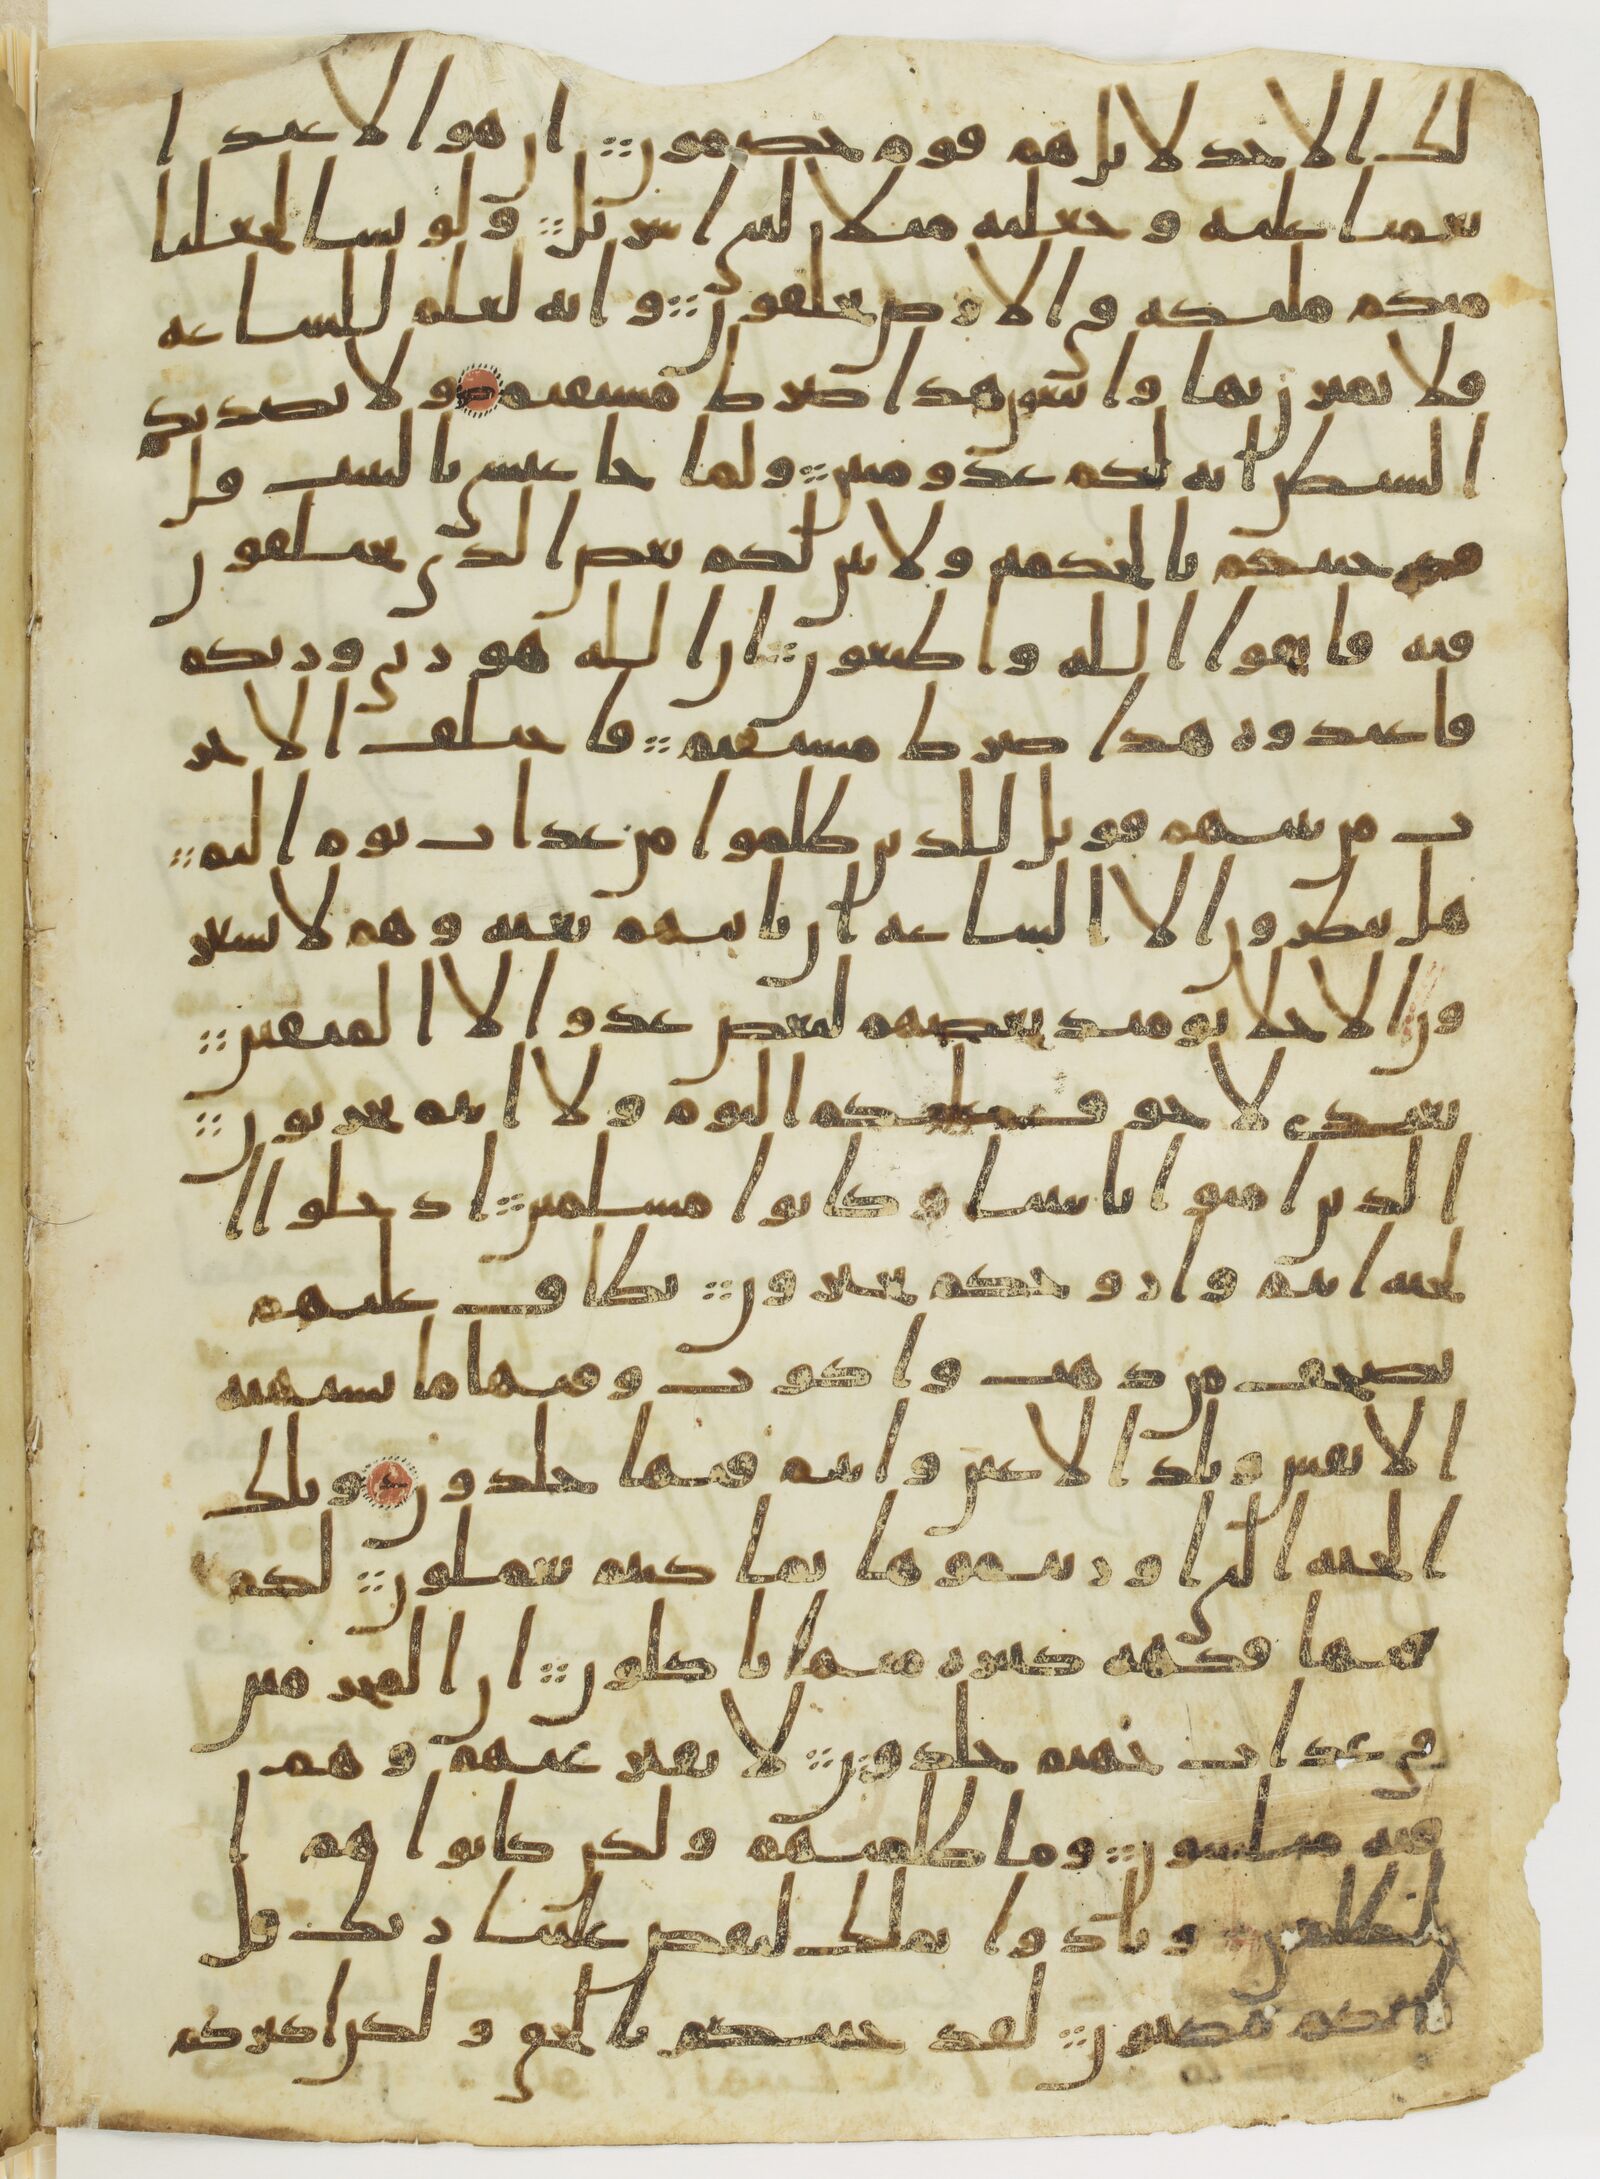 لك الا جدلا بل هم قوم خصمون ان هو الا عبد ا
نعمنا عليه وجعلنه مثلا لبني اسريل ولو نشا لجعلنا
منكم مليكة في الارض يخلفون وانه لعلم للساعة
فلا تمترن بها واتبعون هذا صرط مستقيم ولا يصدنكم
الشيطن انه لكم عدو مبين ولما جا عيسى بالبينت قل
قد جيتكم بالحكمة ولابين لكم بعض الذي تختلفون
فيه فاتقوا الله واطيعون ان الله هو ربي وربكم
فاعبدوه هذا صرط مستقيم فاختلف الاحز
ب من بينهم فويل للذين ظلموا من عذاب يوم اليم
هل ينظرون الا الساعة ان تاتيهم بغتة وهم لا يشعر
ون الاخلا يوميذ بعضهم لبعض عدو الا المتقين
يعبدي لا خوف عليكم اليوم ولا انتم تحزنون
الذين امنوا باييتنا وكانوا مسلمين ادخلوا ا
لجنة انتم وازوجكم تحبرون يطاف عليهم
بصحف من ذهب واكوب وفيها ما تشتهيه
الانفس وتلذ الاعين وانتم فيها خلدون وتلك
الجنة التي اورثتموها بما كنتم تعملون لكم
فيها فكهة كثيرة منها تاكلون ان المجرمين
في عذاب جهنم خلدون لا يفتر عنهم وهم
فيه مبلسون وما ظلمنهم ولكن كانوا هم ا
لظلمين ونادوا يملك ليقض علينا ربك قل
انكم مكثون لقد جينكم بالحق ولكن اكثركم